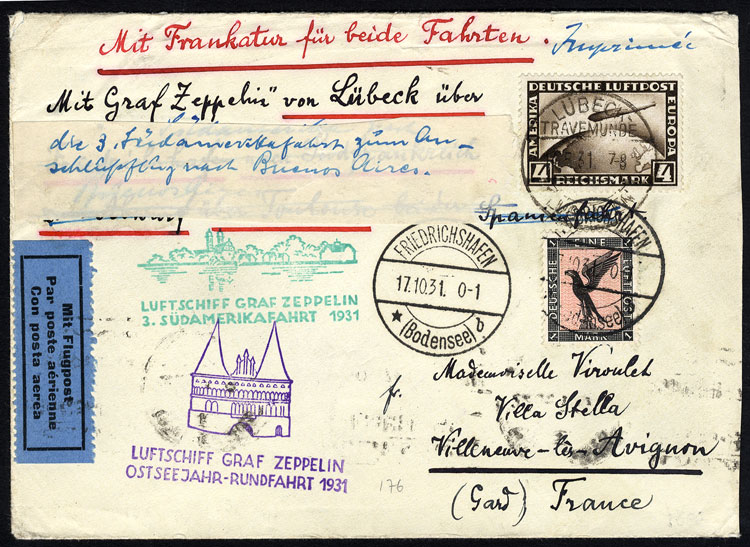 Mit Frankatur für beide Fahrten.
Imprimée
Mit Graf Zeppelin" von Lübeck über
die 3. Südamerikafahrt zum An-
schlußflug nach Buenos Aires.
DEUTSCHE LUFTPOST
AMERIKA
EUROPA
4 REICHSMARK 4
LÜBECK-
TRAVEMÜNDE
5.31 7-8
Spanienfahrt
FRIEDRICHSHAFEN
17.10.31. 0-1
★ (Bodensee) d
FRIEDRICHSHAFEN
(Bodensee)
EINE
DEUTSCHE
LUFTPOST
1 MARK 1
LUFTSCHIFF GRAF ZEPPELIN
3. SÜDAMERIKAFAHRT 1931
Mit Flugpost
Par poste aérienne
Con posta aerea
LUFTSCHIFF GRAF ZEPPELIN
OSTSEEJAHR-RUNDFAHRT 1931
176
fr.
Mademoiselle Viroulet
Villa Stella
Villeneuve-lès-Avignon
(Gard) France